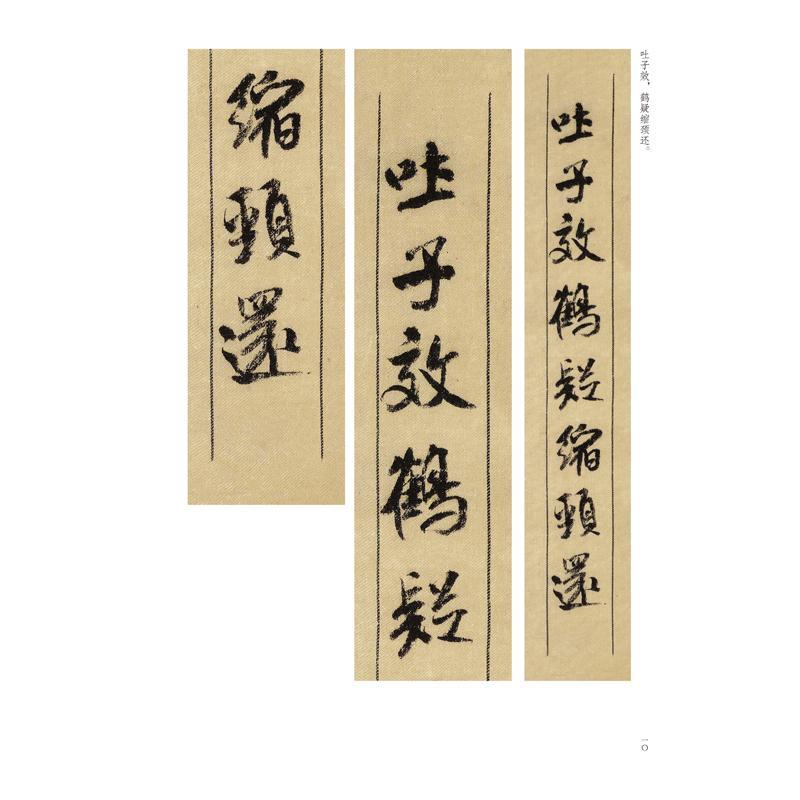 吐子效，鹤疑缩颈还。
吐子效鶴疑縮頸還
吐子效鶴疑
縮頸還
一〇